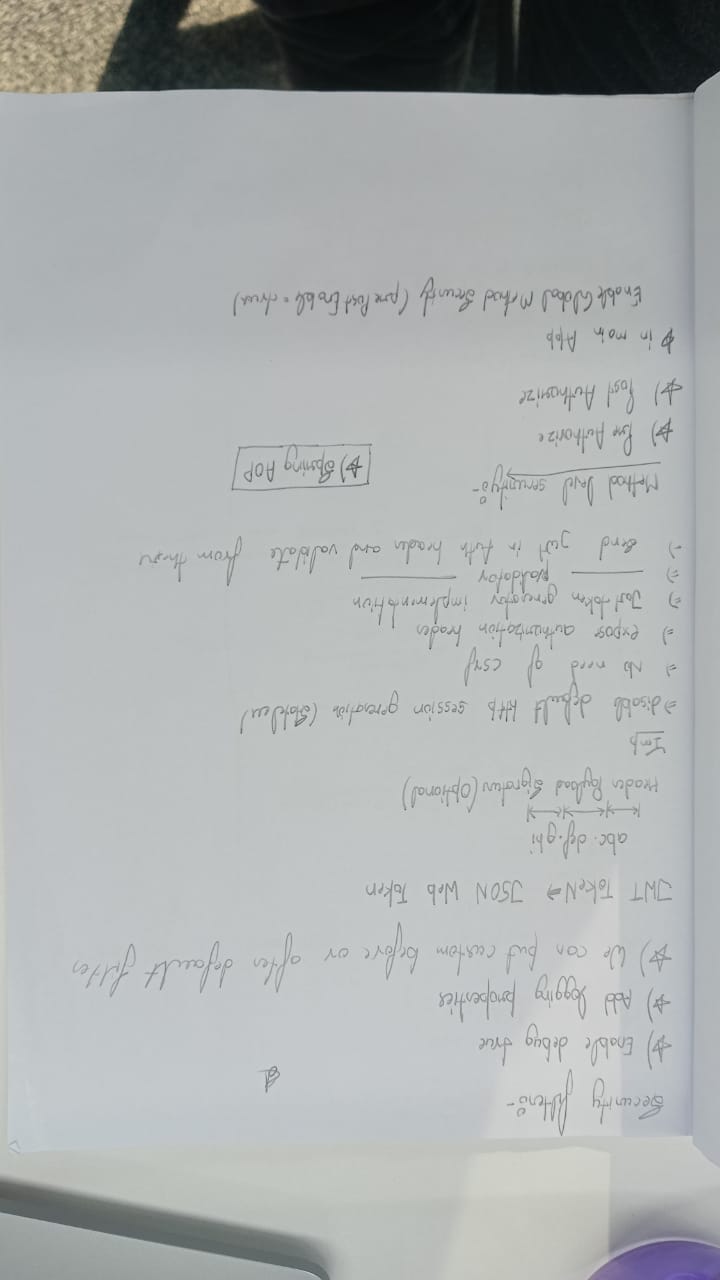 Security filters:-
☆) Enable debug true
☆) Add logging properties
☆) We can put custom before or after default filter
JWT Token => JSON Web Token
abc.def.ghi
Header Payload Signature (Optional)
Imp
=> disable default http session generation (Stateless)
=> No need of csrf
=> expose authorization header
=> Jwt token generator implementation
=> ___ validator ___
=> Send jwt in Auth header and validate from there
Method level security:-
☆) Spring AOP
☆) Pre Authorize
☆) Post Authorize
☆ in main App
Enable Global Method Security (pre Post Enable = true)